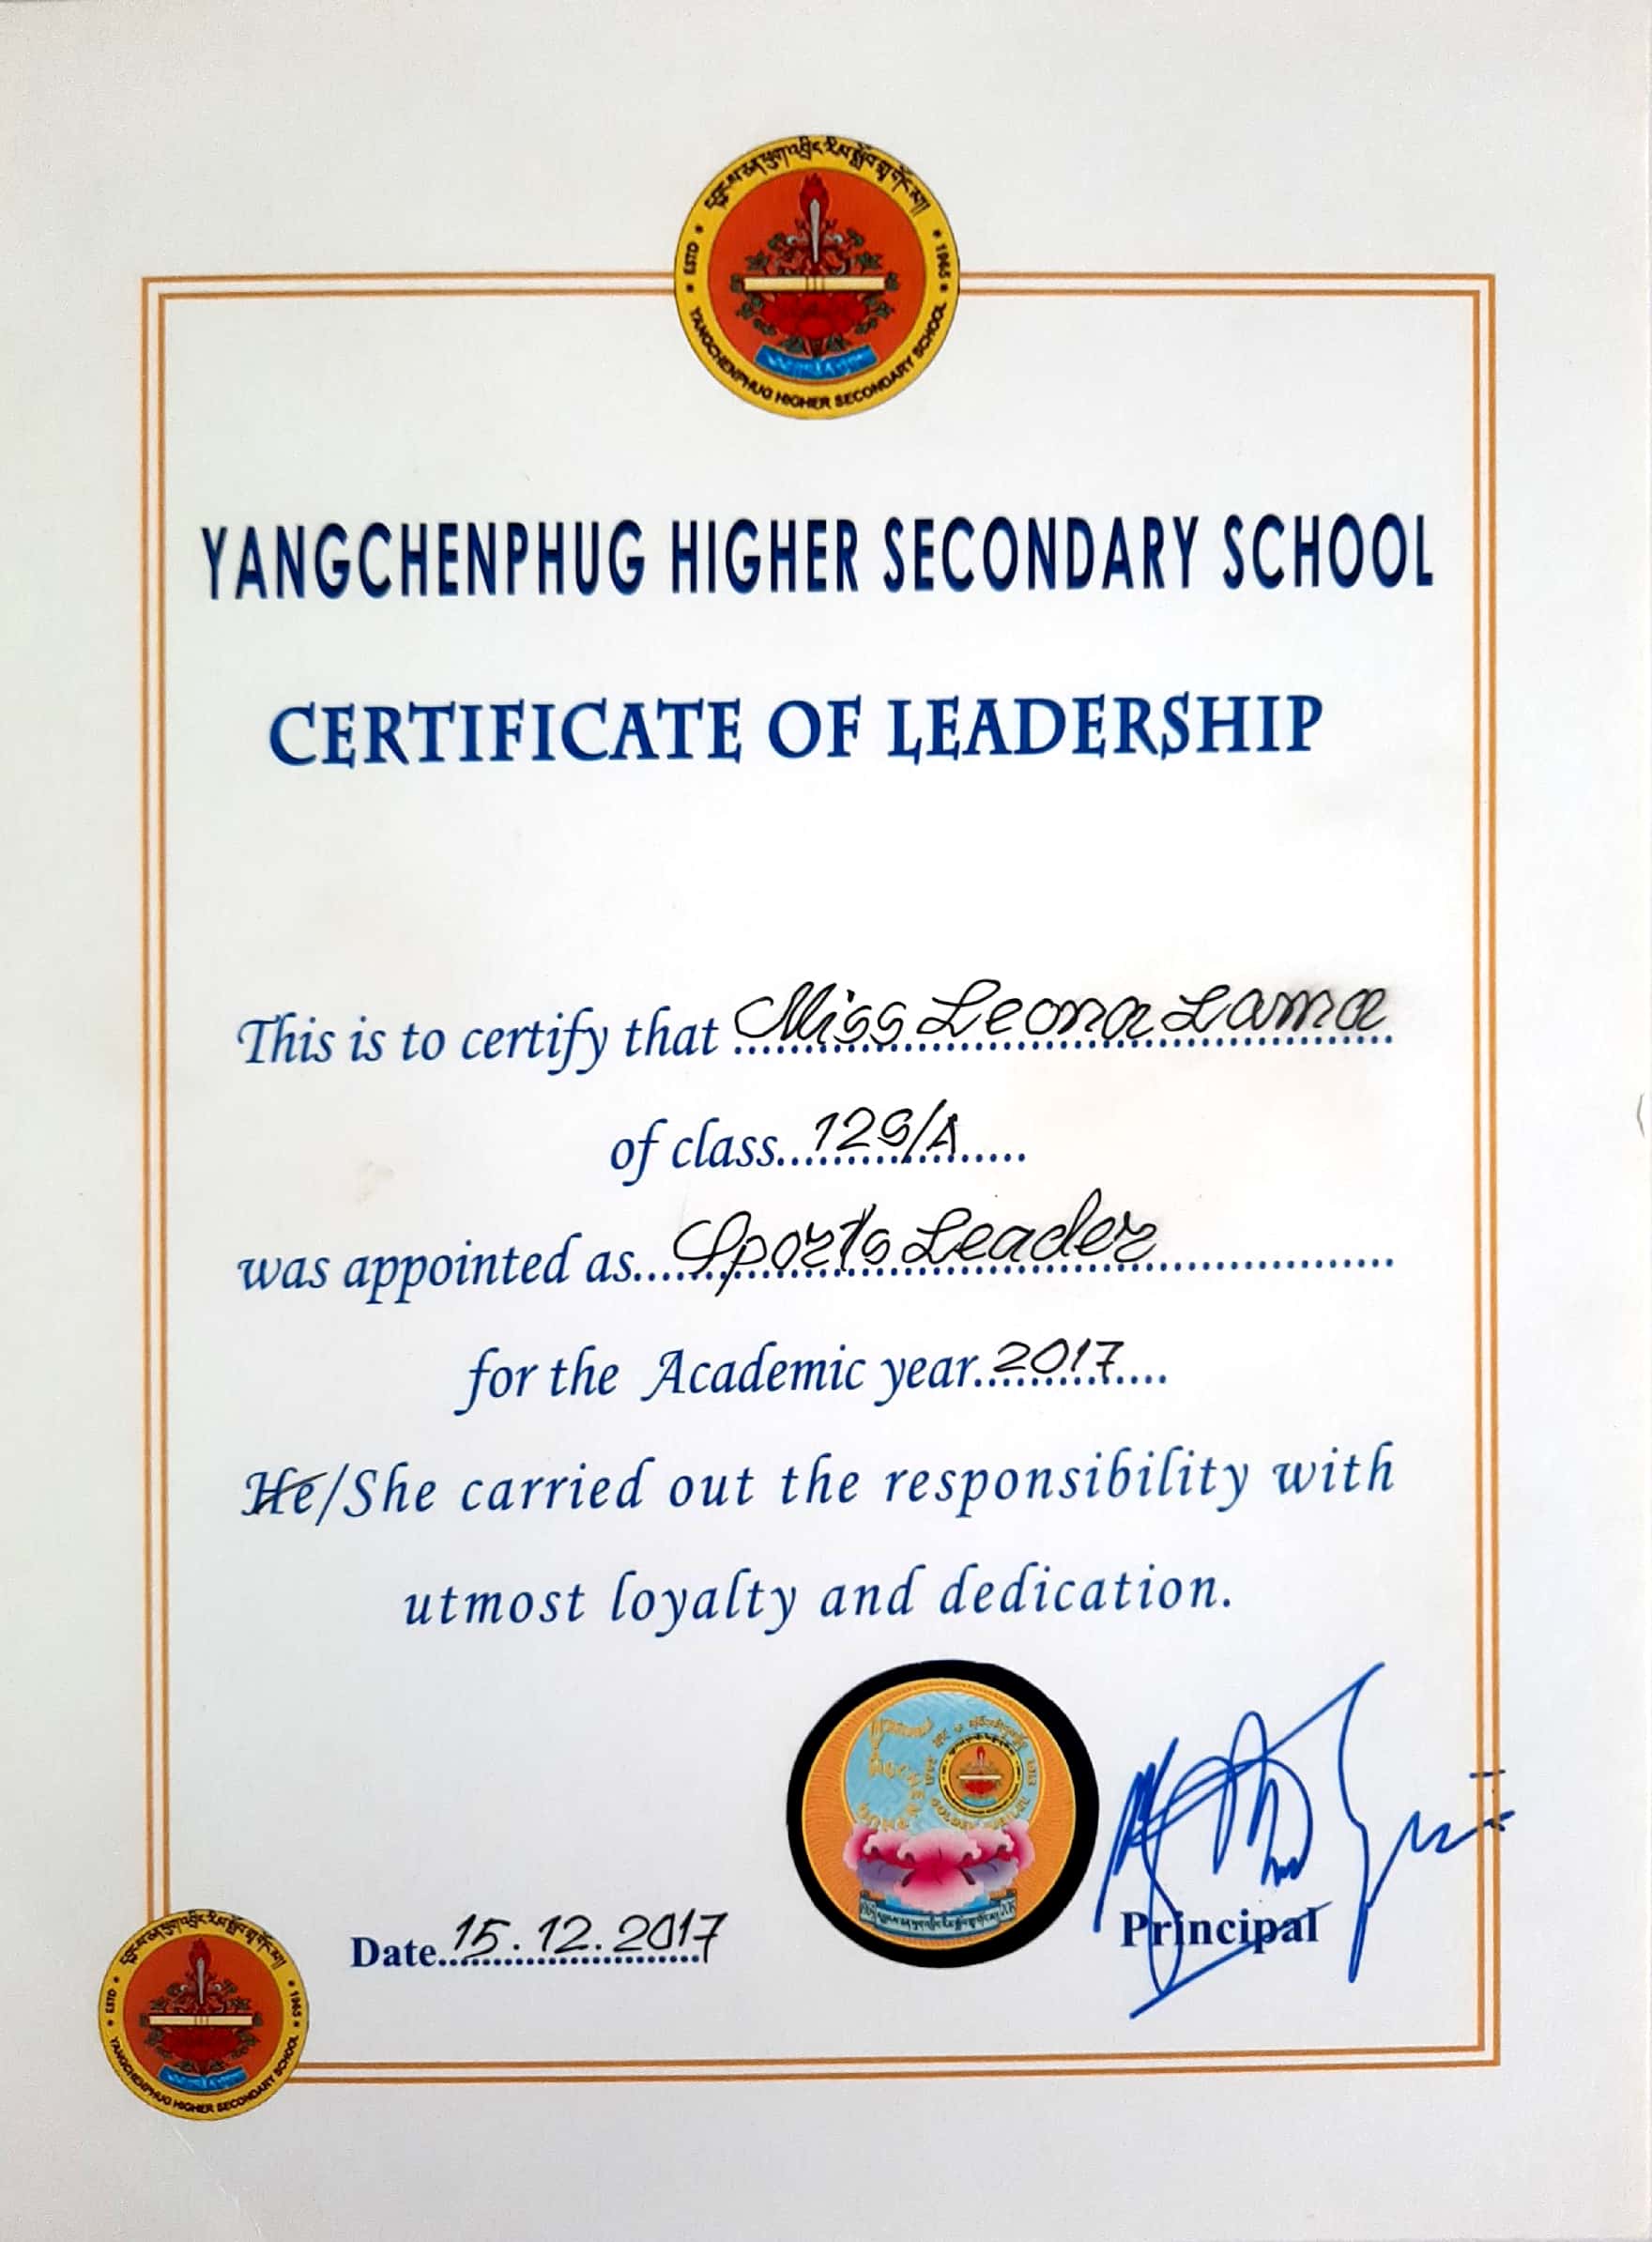 ESTD 1965
YANGCHENPHUG HIGHER SECONDARY SCHOOL
YANGCHENPHUG HIGHER SECONDARY SCHOOL
CERTIFICATE OF LEADERSHIP
This is to certify that Miss Leona Lama
of class 12S/A
was appointed as Sports Leader
for the Academic year 2017
He/She carried out the responsibility with
utmost loyalty and dedication.
Date 15.12.2017
Principal
ESTD 1965
YANGCHENPHUG HIGHER SECONDARY SCHOOL